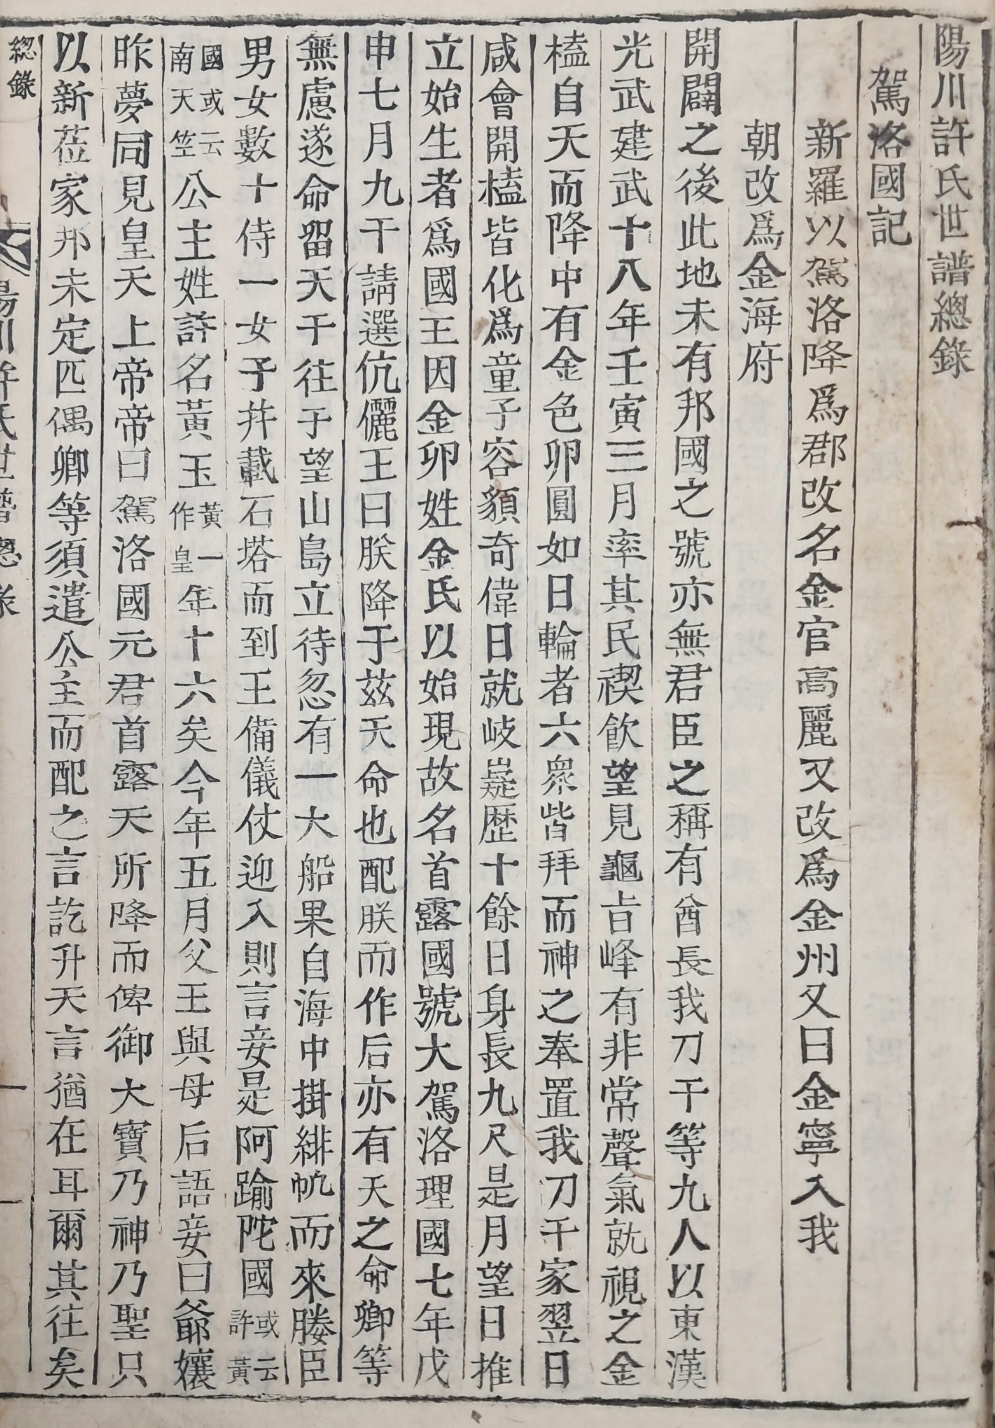 陽川許氏世譜總錄
駕洛國記
新羅以駕洛降爲郡改名金官高麗又改爲金州又曰金寧入我
朝改爲金海府
開闢之後此地未有邦國之號亦無君臣之稱有酋長我刀干等九人以東漢
光武建武十八年壬寅三月率其民禊飮望見龜旨峰有非常聲氣就視之金
榼自天而降中有金色卵圓如日輪者六衆皆拜而神之奉置我刀干家翌日
咸會開榼皆化爲童子容貌奇偉日就岐嶷歷十餘日身長九尺是月望日推
立始生者爲國王因金卵姓金氏以始現故名首露國號大駕洛理國七年戊
申七月九干請選伉儷王曰朕降于玆天命也配朕而作后亦有天之命卿等
無慮遂命留天干往于望山島立待忽有一大船果自海中掛緋帆而來媵臣
男女數十侍一女子幷載石塔而到王備儀仗迎入則言妾是阿踰陀國或云許黃
國或云南天竺公主姓許名黃玉黃一作皇年十六矣今年五月父王與母后語妾曰爺孃
昨夢同見皇天上帝帝曰駕洛國元君首露天所降而俾御大寶乃神乃聖只
以新莅家邦未定匹偶卿等須遣公主而配之言訖升天言猶在耳爾其往矣
總錄
陽川許氏世譜總錄